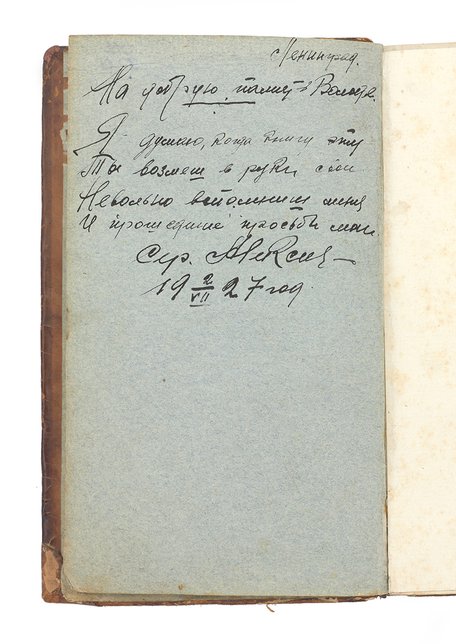 Ленинград.
На добрую память Володе.
Я думаю, когда книгу эту
Ты возмеш в руки свои
Невольно вспомниш меня
И прошедшие просьбы мои.
Сер.
19 2/VII 27 год.